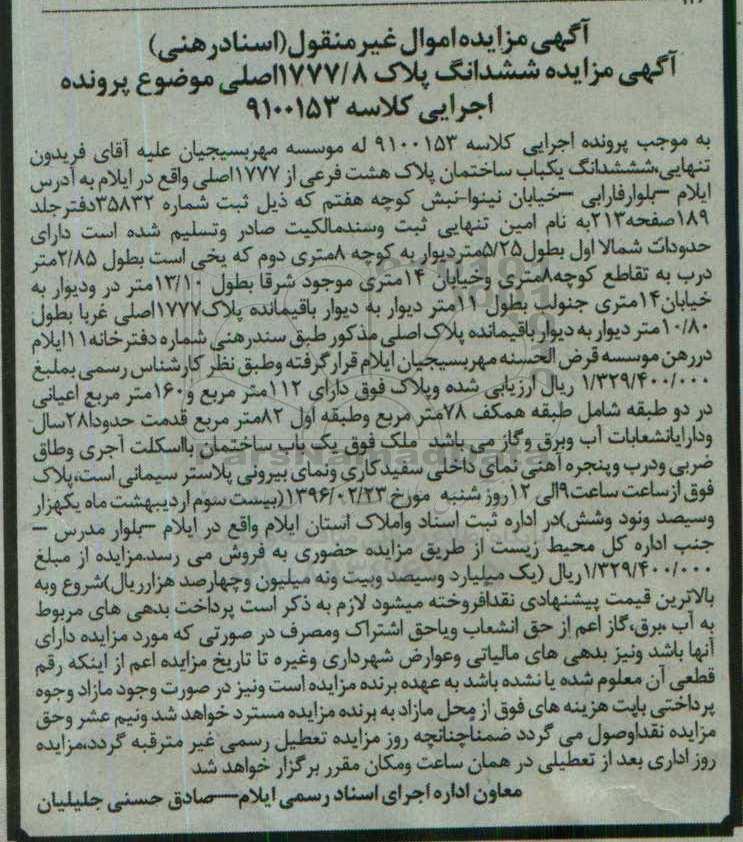 آگهی مزایده اموال غیر منقول(اسنادرهنی)
آگهی مزایده ششدانگ پلاک ۱۷۷۷/۸اصلی موضوع پرونده
اجرایی کلاسه ۹۱۰۰۱۵۳
به موجب پرونده اجرایی کلاسه ۹۱۰۰۱۵۳ له موسسه مهربسیجیان علیه آقای فریدون
تنهایی،شششدانگ یکباب ساختمان پلاک هشت فرعی از ۱۷۷۷اصلی واقع در ایلام به آدرس
ایلام –بلوارفارابی –خیابان نینوا-نبش کوچه هفتم که ذیل ثبت شماره ۳۵۸۳۲دفترجلد
۱۸۹صفحه۲۱۳به نام امین تنهایی ثبت وسندمالکیت صادر وتسلیم شده است دارای
حدودات شمالا اول بطول۵/۲۵متردیوار به کوچه ۸متری دوم که یخی است بطول ۲/۸۵متر
درب به تقاطع کوچه۸متری وخیابان ۱۴متری موجود شرقا بطول ۱۳/۱۰متر در ودیوار به
خیابان۱۴متری جنوبا بطول ۱۱متر دیوار به دیوار باقیمانده پلاک۱۷۷۷اصلی غربا بطول
۱۰/۸۰متر دیوار به دیوار باقیمانده پلاک اصلی مذکور طبق سندرهنی شماره دفترخانه۱۱ایلام
دررهن موسسه قرض الحسنه مهربسیجیان ایلام قرار گرفته وطبق نظر کارشناس رسمی بمبلغ
۱/۳۲۹/۴۰۰/۰۰۰ ریال ارزیابی شده وپلاک فوق دارای ۱۱۲متر مربع و۱۶۰متر مربع اعیانی
در دو طبقه شامل طبقه همکف ۷۸متر مربع وطبقه اول ۸۲متر مربع قدمت حدودا۲۸سال
ودارایانشعابات آب وبرق وگاز می باشد ملک فوق یک باب ساختمان بااسکلت آجری وطاق
ضربی ودرب وپنجره آهنی نمای داخلی سفیدکاری ونمای بیرونی پلاستر سیمانی است،پلاک
فوق ازساعت ساعت۹الی ۱۲روز شنبه مورخ ۱۳۹۶/۰۲/۲۳(بیست سوم اردیبهشت ماه یکهزار
وسیصد ونود وشش)در اداره ثبت اسناد واملاک استان ایلام واقع در ایلام –بلوار مدرس –
جنب اداره کل محیط زیست از طریق مزایده حضوری به فروش می رسد.مزایده از مبلغ
۱/۳۲۹/۴۰۰/۰۰۰ریال (یک میلیارد وسیصد وبیت ونه میلیون وچهارصد هزارریال)شروع وبه
بالاترین قیمت پیشنهادی نقدافروخته میشود لازم به ذکر است پرداخت بدهی های مربوط
به آب ،برق،گاز اعم از حق انشعاب ویاحق اشتراک ومصرف در صورتی که مورد مزایده دارای
آنها باشد ونیز بدهی های مالیاتی وعوارض شهرداری وغیره تا تاریخ مزایده اعم از اینکه رقم
قطعی آن معلوم شده یا نشده باشد به عهده برنده مزایده است ونیز در صورت وجود مازاد وجوه
پرداختی بابت هزینه های فوق از محل مازاد به برنده مزایده مسترد خواهد شد ونیم عشر وحق
مزایده نقداوصول می گردد ضمناچنانچه روز مزایده تعطیل رسمی غیر مترقبه گردد،مزایده
روز اداری بعد از تعطیلی در همان ساعت ومکان مقرر برگزار خواهد شد
معاون اداره اجرای اسناد رسمی ایلام–صادق حسنی جلیلیان